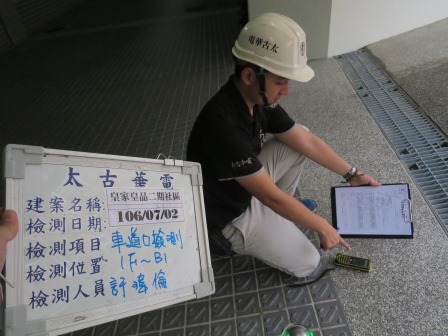 太古華電
太古華電
建案名稱: 皇家皇品二期社區
檢測日期: 106/07/02
檢測項目 車道口檢測
檢測位置: 1F~B1
檢測人員 許瑋倫